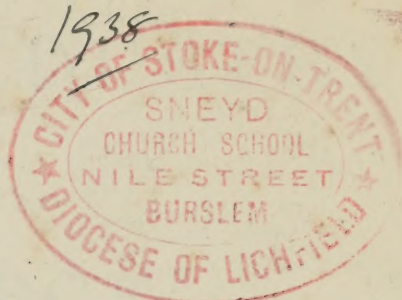 1938
CITY OF STOKE-ON-TRENT
SNEYD
CHURCH SCHOOL
NILE STREET
BURSLEM
DIOCESE OF LICHFIELD